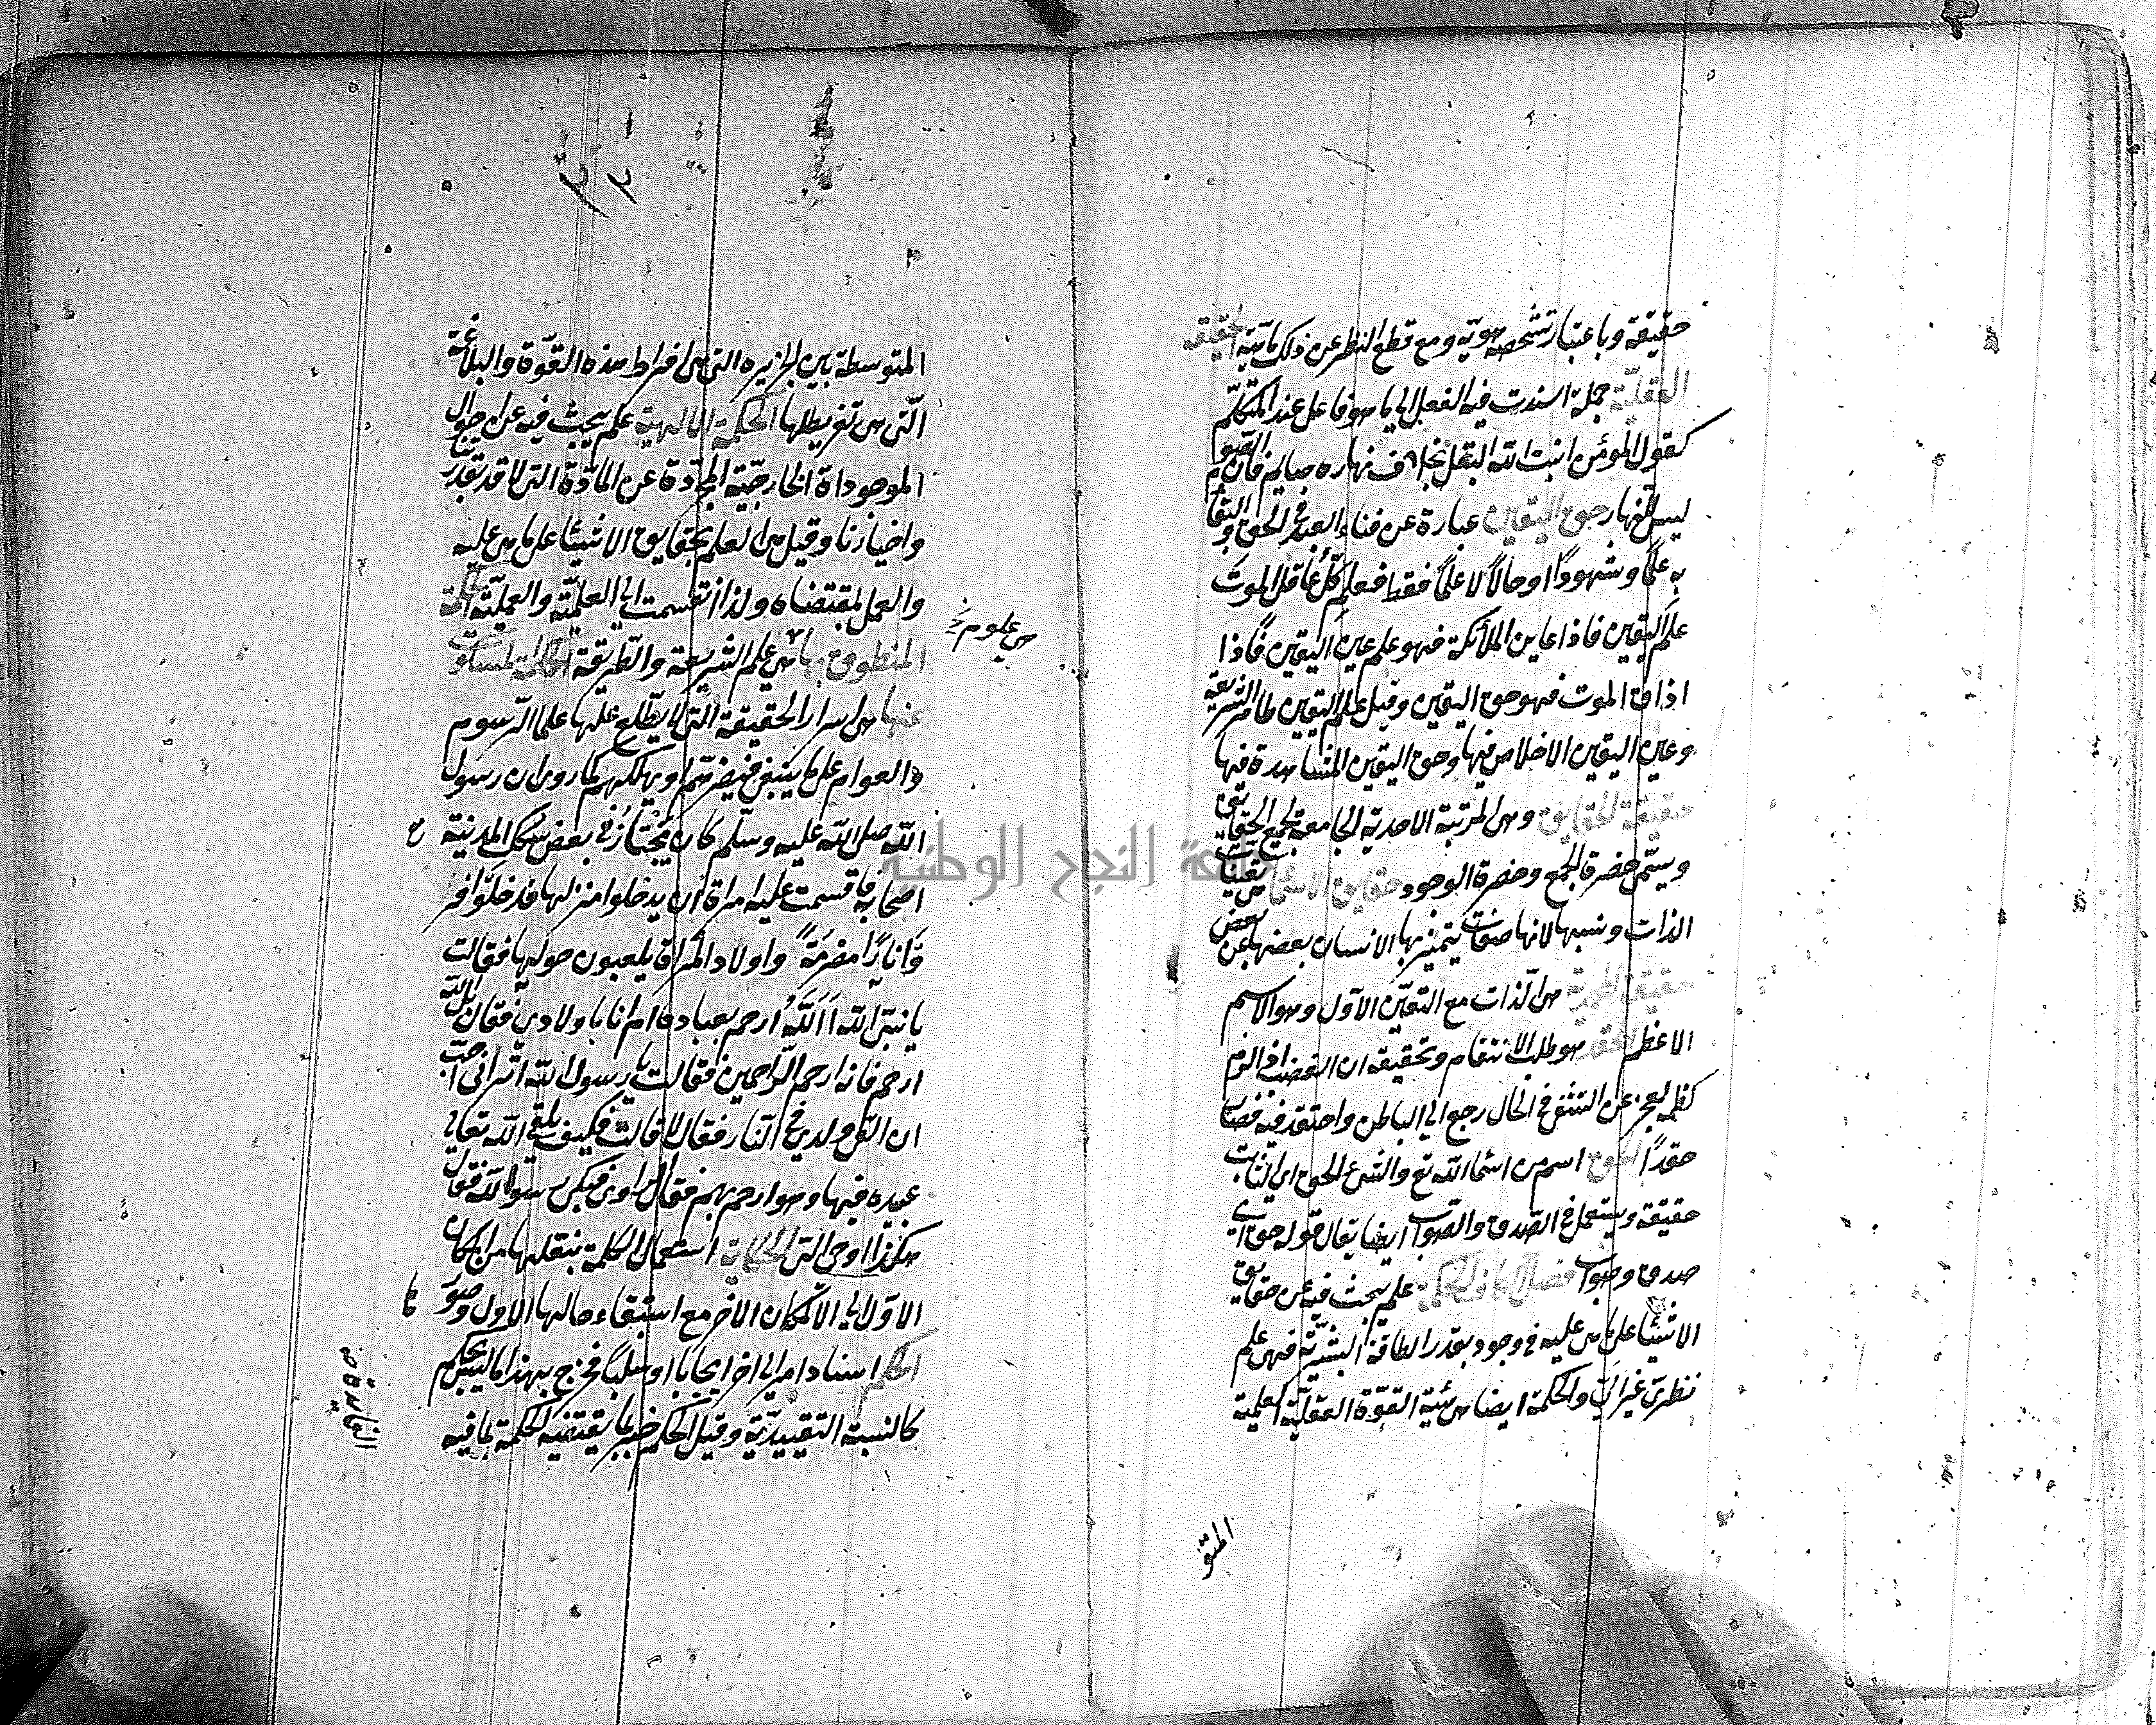 حقيقة وباعتبار تشخصه هوية ومع قطع النظر عن ذلك ماهية الحقيقة
العقلية جملة اسندت فيه الفعل الى ما هو فاعل عند المتكلم
كقول المؤمن انبت الله البقل بخلاف نهاره صايم فان الصوم
ليس للنهار حق اليقين عبارة عن فناء العبد في الحق والبقا
به علمًا وشهودًا وحالاً لا علمًا فقط فعلم كلُّ عاقل الموتَ
علم اليقين فاذا عاين الملائكة فهو علم عين اليقين فاذا
اذاق الموت فهو حق اليقين وقيل علم اليقين ظاهر الشريعة
وعين اليقين الاخلاص فيها وحق اليقين المشاهدة فيها
حقيقة الحقايق وهى المرتبة الاحدية الجامعة لجميع الحقايق
ويسمّى حضرة الجمع وحضرة الوجود حقايق الاسما هى تعينات
الذات ونسبها لانها صفات يتميز بها الانسان بعضها عن بعض
حقيقة المحمدية هى الذات مع التعيّن الاوّل وهو الاسم
الاعظم الحقد هو طلب الانتقام وتحقيقه ان الغضب اذا لزم
كظمه لعجز عن التشفى في الحال رجع الى الباطن واحتقد فيه فصار
حقدًا الحق اسم من اسما الله تع والشئ الحق اى الثابت
حقيقة ويستعمل في الصدق والصواب ايضا يقال قوله حق اى
صدق وصواب فصل الكاف الحكمة علم يبحث فيه عن حقايق
الاشيا على ما هى عليه في وجود بقدر الطاقة البشرية فهى علم
نظرىّ غير الىّ والحكمة ايضا هى هيئة القوّة العقليّة العلمية
المتو
٢٣
المتوسطة بين الجزيره التى هى افراط هذه القوّة والبلاغة
الّتى هى تفريطها الحكمة الالهية علم يبحث فيه عن احوال
الموجوداة الخارجيّة المجرّدة عن المادّة التى لا قد بقدرتنا
واختيارنا وقيل هى العلم بحقايق الاشيئا على ما هى عليه
والعمل بمقتضاه ولذا انقسمت الى العلميّة والعمليّة الحكمة
المنطوق بها هى علم الشريعة والطّريقة الحكمة المسكوت
هى علوم
عنها هى اسرار الحقيقة التى لا يطّلع عليها علما الرّسوم
والعوام على ما ينبغى فيضرّهم او يهلكهم كما روى ان رسول
الله صلى الله عليه وسلّم كان يَجْتازُ في بعض سكك المدينة
اصحابه فاقسمت عليه امراة ان يدخلوا منزلها فدخلوا فر
وا نارًا مضرمَةً واولاد المراة يلعبون حولها فقالت
يا نبىّ الله أ اَللهُ ارحم بعباده ام انا باولادى فقال بل الله
ارحم فانه ارحم الرّاحمين فقالت يا رسول الله اترانى احبّ
ان القى ولدى في النار فقال لا قالت فكيف يلقى الله تعالى
عبده فيها وهو ارحم بهم فقال الراوى فبكى رسول الله فقال
هكذا اوحى الىّ الحكاية استعمال الكلمة بنقلها من المكان
الاوّل الى الامكان الاخر مع استبقاء حالها الاول وصو
الحكم اسناد امر الى اخر ايجابا او سلبًا فخرج بهذا ما ليس بحكم
كالنسبة التقييديّة وقيل الحكم خبر ما يقتضيه الحكمة بما فيه
جامعة النجاح الوطنية